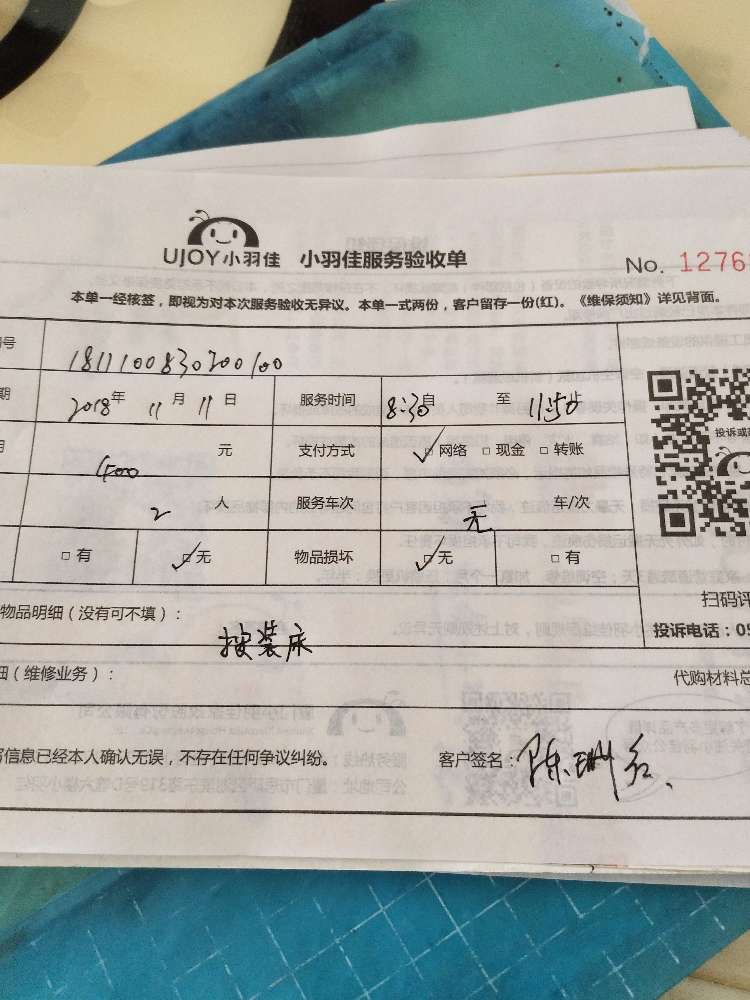 UJOY小羽佳 小羽佳服务验收单 No. 1276
本单一经核签，即视为对本次服务验收无异议。本单一式两份，客户留存一份(红)。《维保须知》详见背面。
号 1811100830200100
期 2018年 11月 11日 服务时间 8:30自 至 11:50
400 元 支付方式 ✓网络 □现金 □转账
2 人 服务车次 无 车/次
□有 ✓无 物品损坏 ✓无 □有
投诉或
扫码评
物品明细（没有可不填）： 投诉电话：05
按装床
细（维修业务）： 代购材料总
写信息已经本人确认无误，不存在任何争议纠纷。 客户签名：陈